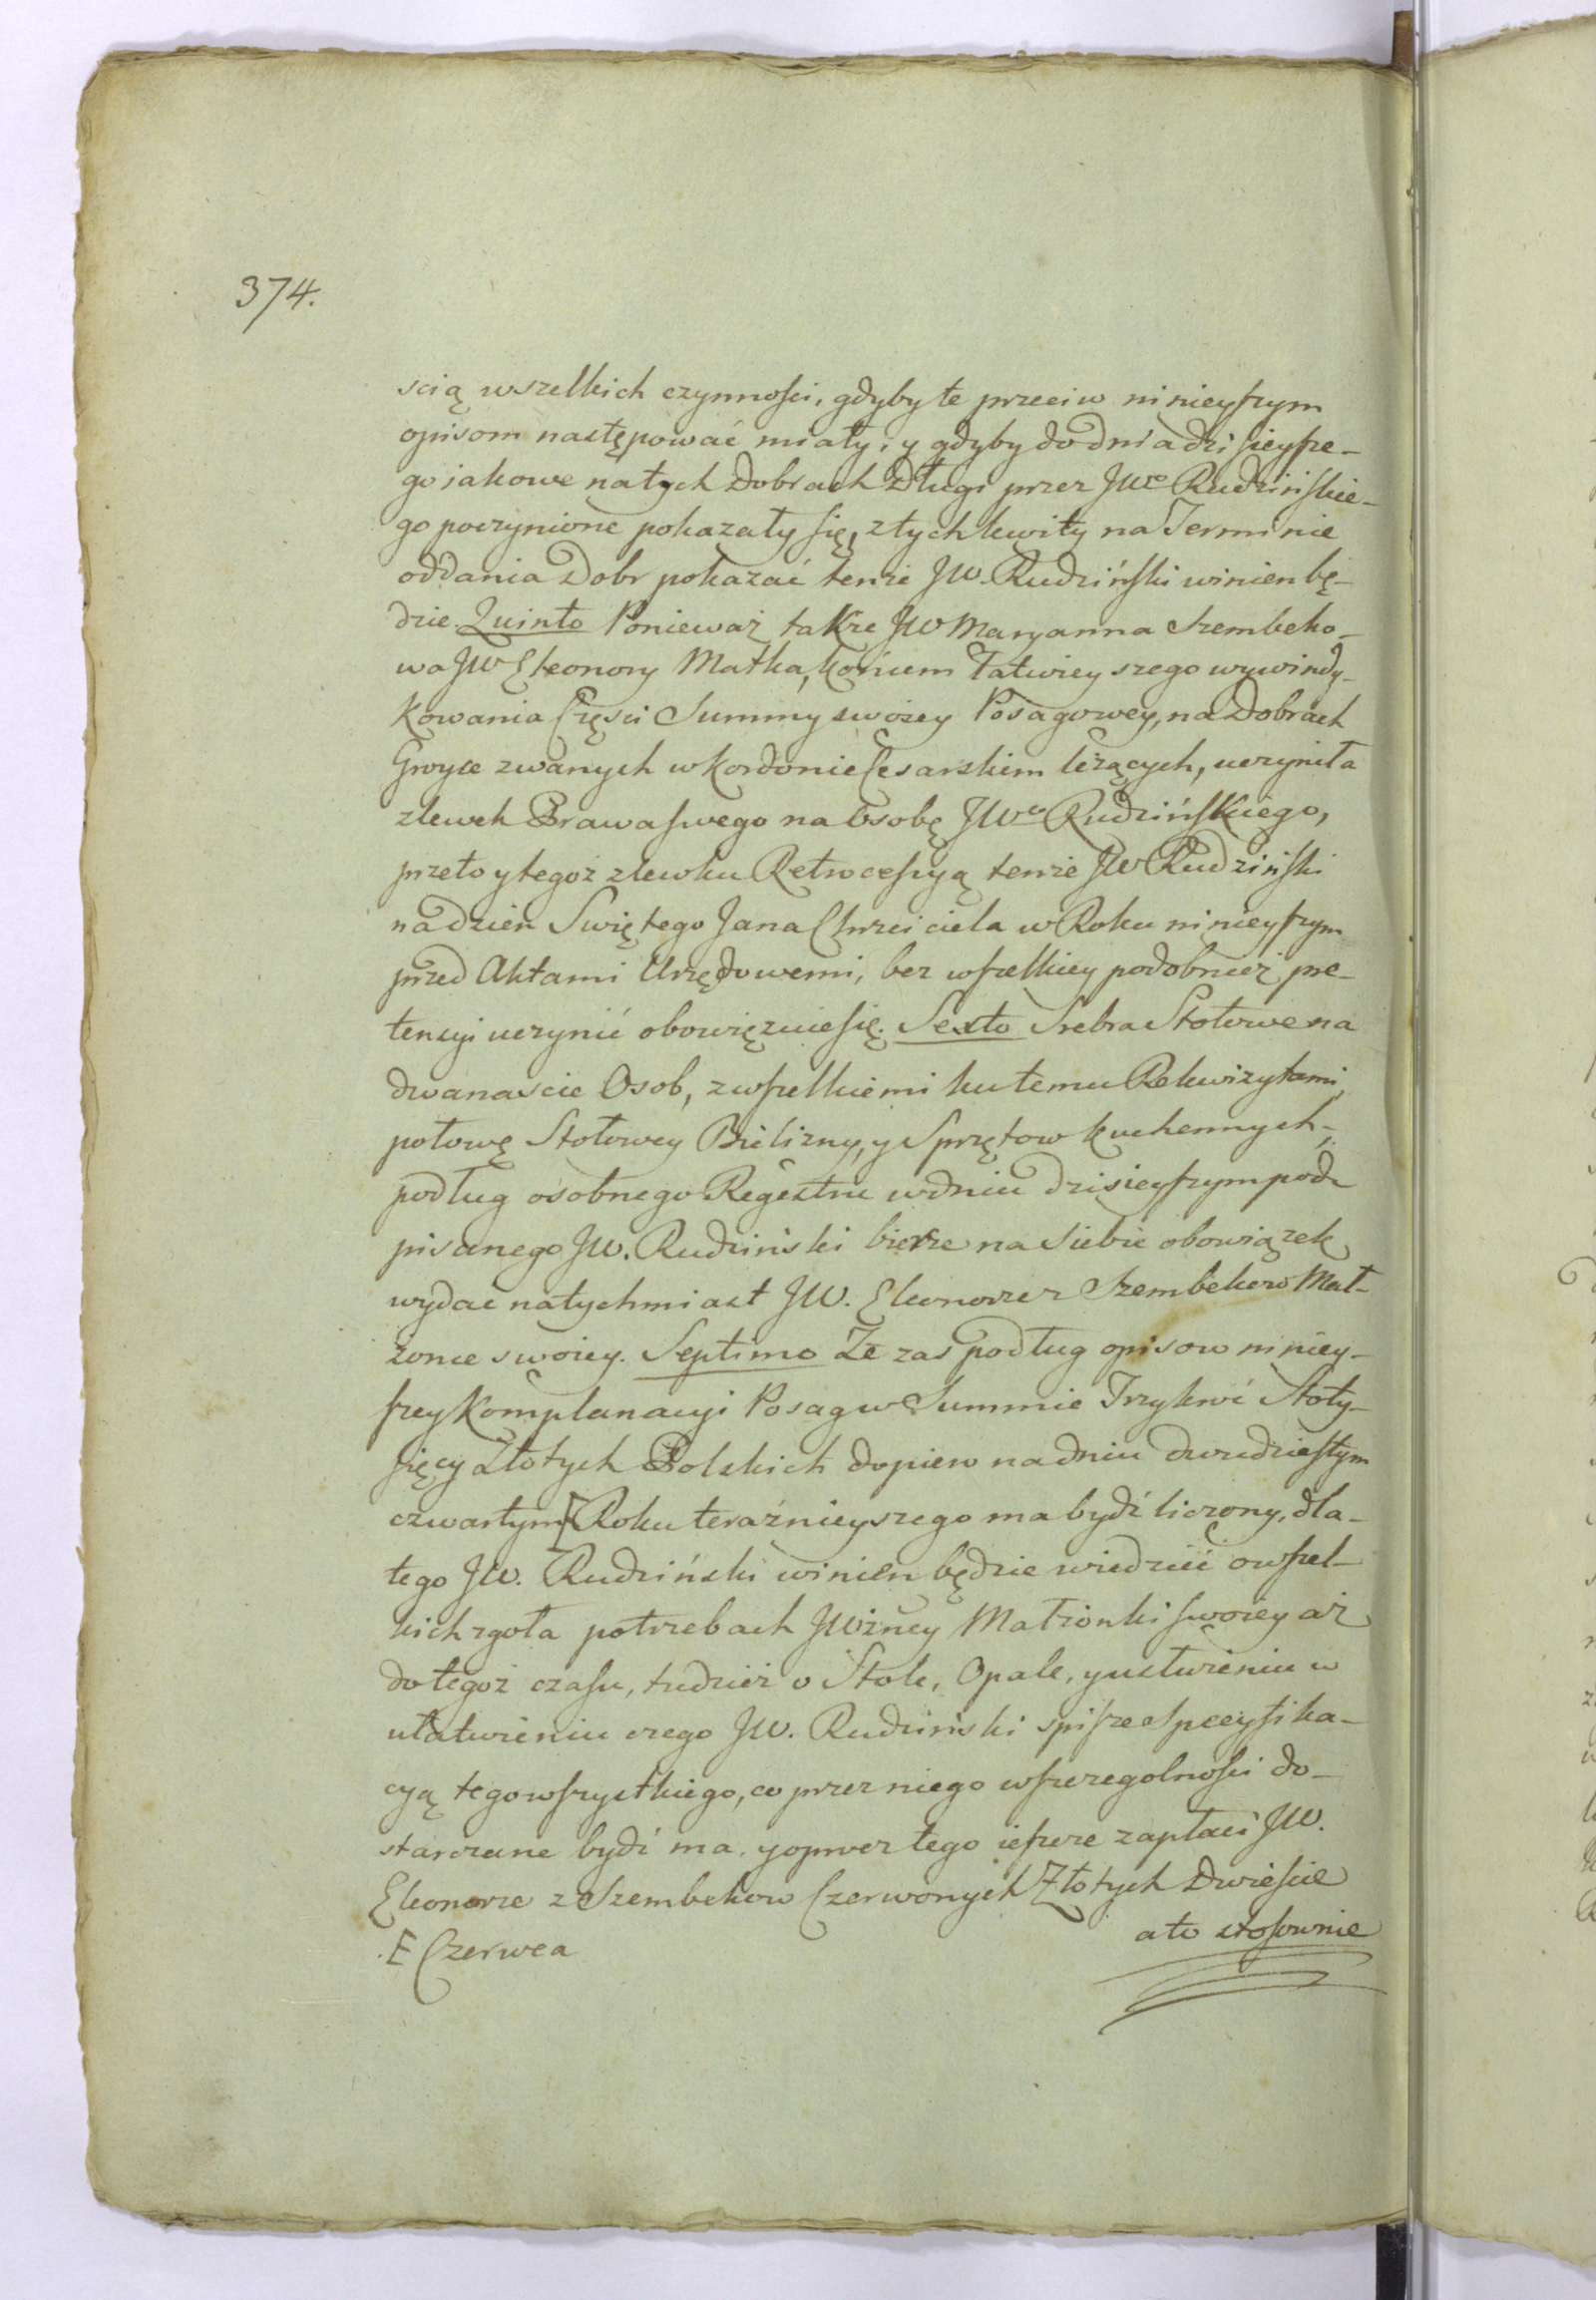 374.
scią wszelkich czynności, gdyby te przeciw ninieyszym
opisom następować miały, y gdyby do dnia dzisieysze-
go jakowe na tych Dobrach Długi przez JWo Rudzińskie-
go poczynione pokazały się, z tych kwity na Terminie
oddania Dobr pokazać tenże JW. Rudziński winien bę-
dzie. Quinto Ponieważ także JW Maryanna Szembeko-
wa JW Eleonory Matka, końcem łatwieyszego wywindy-
kowania Części Summy swoiey Posagowey, na Dobrach
Groyce zwanych w Kordonie Cesarskim leżących, uczyniła
zlewek Prawa swego na Osobę JWo Rudzińskiego,
przeto y tegoż zlewku Retrocessyą tenże JW Rudziński
na dzien Swiętego Jana Chrzciciela w Roku ninieyszym
przed Aktami Urzędowemi, bez wszelkiey podobnież pre-
tensyi uczynić obowięzuie się. Sexto Srebra Stołowe na
dwanascie Osob, z wszelkiemi ku temu Rekwizytami,
połowę Stołowey Bielizny, y Sprzętow kuchennych,
podług osobnego Regestru w dniu dzisieyszym pod-
pisanego JW. Rudziński bierze na siebie obowiązek
wydac natychmiast JW. Eleonorze z Szembekow Mał-
żonce swoiey. Septimo Że zas podług opisow niniey-
szey Komplanacyi Posag w Summie Trzykroć Stoty-
sięcy Złotych Polskich dopiero na dniu dwudziestym
czwartym E Roku teraźnieyszego ma bydź liczony, dla-
tego JW. Rudziński winien będzie wiedzieć o wszel-
kich zgoła potrzebach JWżney Małżonki swoiey aż
do tegoż czasu, tudzież o Stole, Opale, y
ułatwieniu czego JW. Rudziński spisze Specyfika-
cyą tego wszystkiego, co przez niego w szczegolności do-
starczane bydź ma, y oprocz tego ieszcze zapłaci JW.
Eleonorze z Szembekow Czerwonych Złotych Dwieście
E Czerwca
a to stosownie